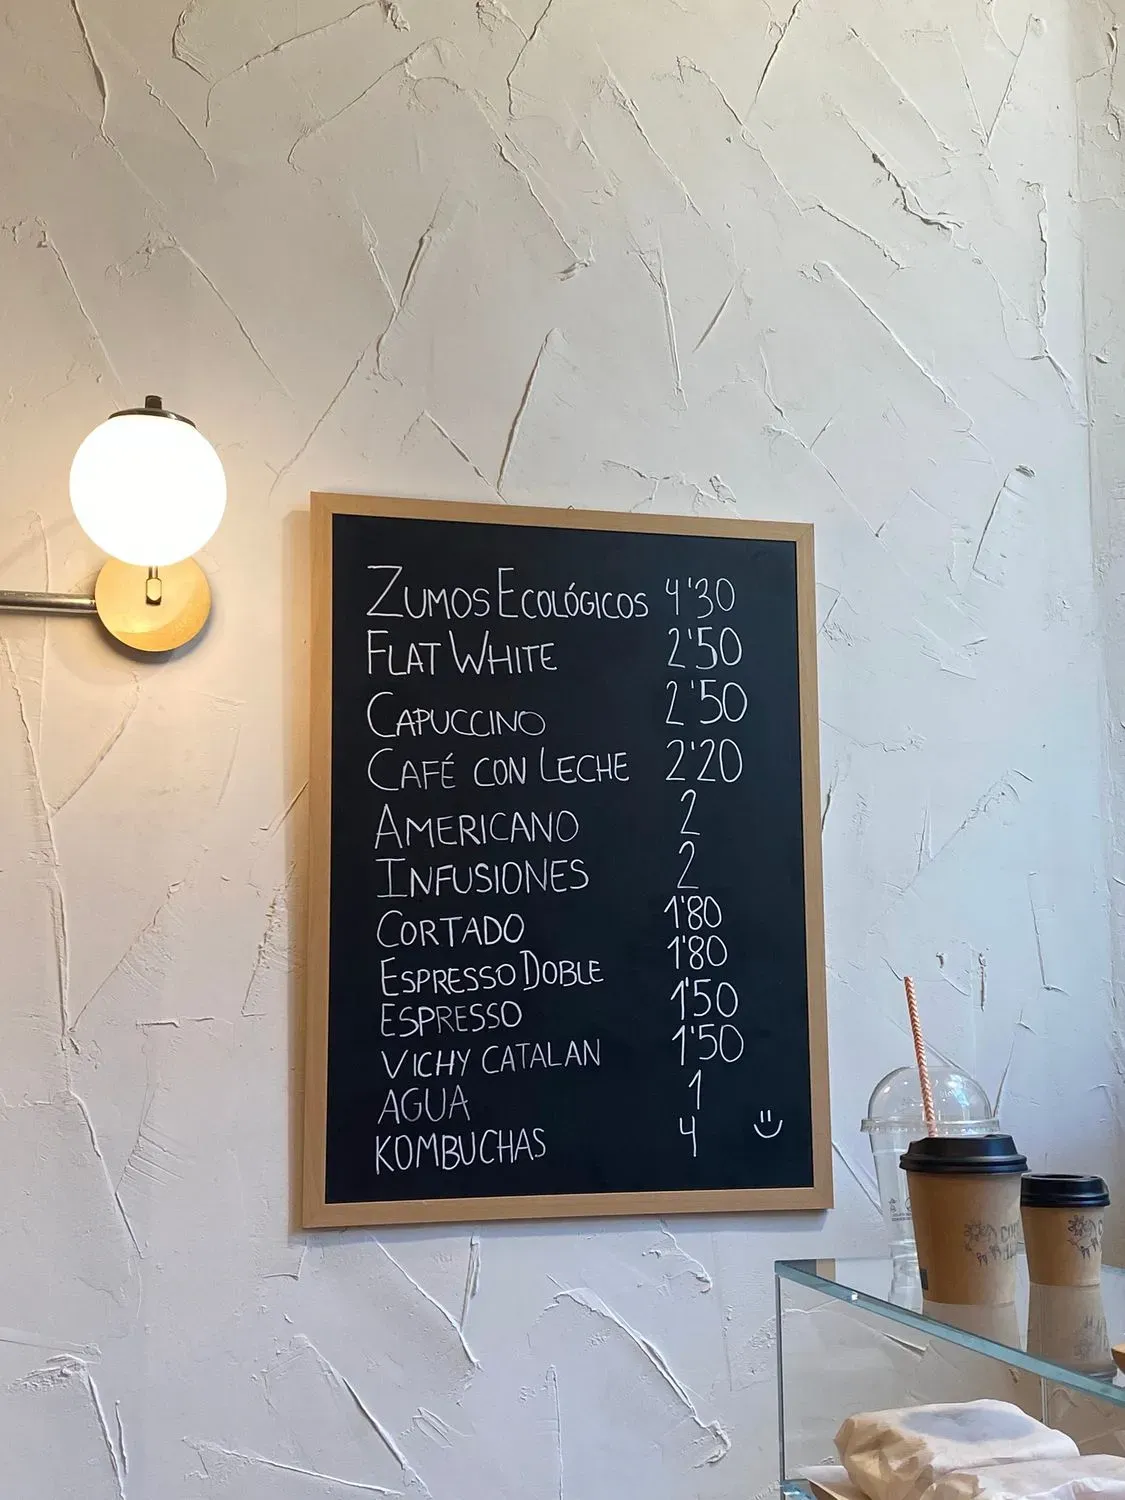 ZUMOS ECOLÓGICOS 4'30
FLAT WHITE 2'50
CAPUCCINO 2'50
CAFÉ CON LECHE 2'20
AMERICANO 2
INFUSIONES 2
CORTADO 1'80
ESPRESSO DOBLE 1'80
ESPRESSO 1'50
VICHY CATALAN 1'50
AGUA 1
KOMBUCHAS 4